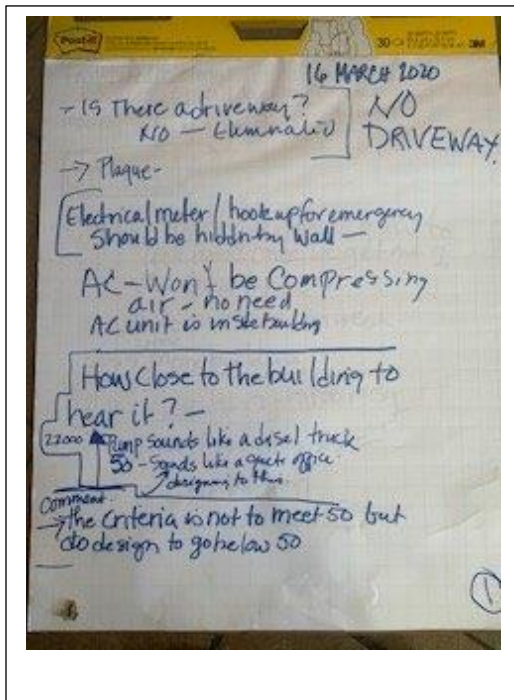 Post-it
30
3M
16 MARCH 2020
- Is There a driveway?
NO - Eliminated
NO
DRIVEWAY.
-> Plaque-
Electrical meter / hookup for emergency
Should be hiddn by Wall -
AC - Won't be Compressing
air - no need
AC unit is inside building
How Close to the building to
hear it? -
Pump Sounds like a disel truck
50 - Sounds like a quete office
designing to this
Comment
-> the Criteria is not to meet 50 but
do design to go below 50
1